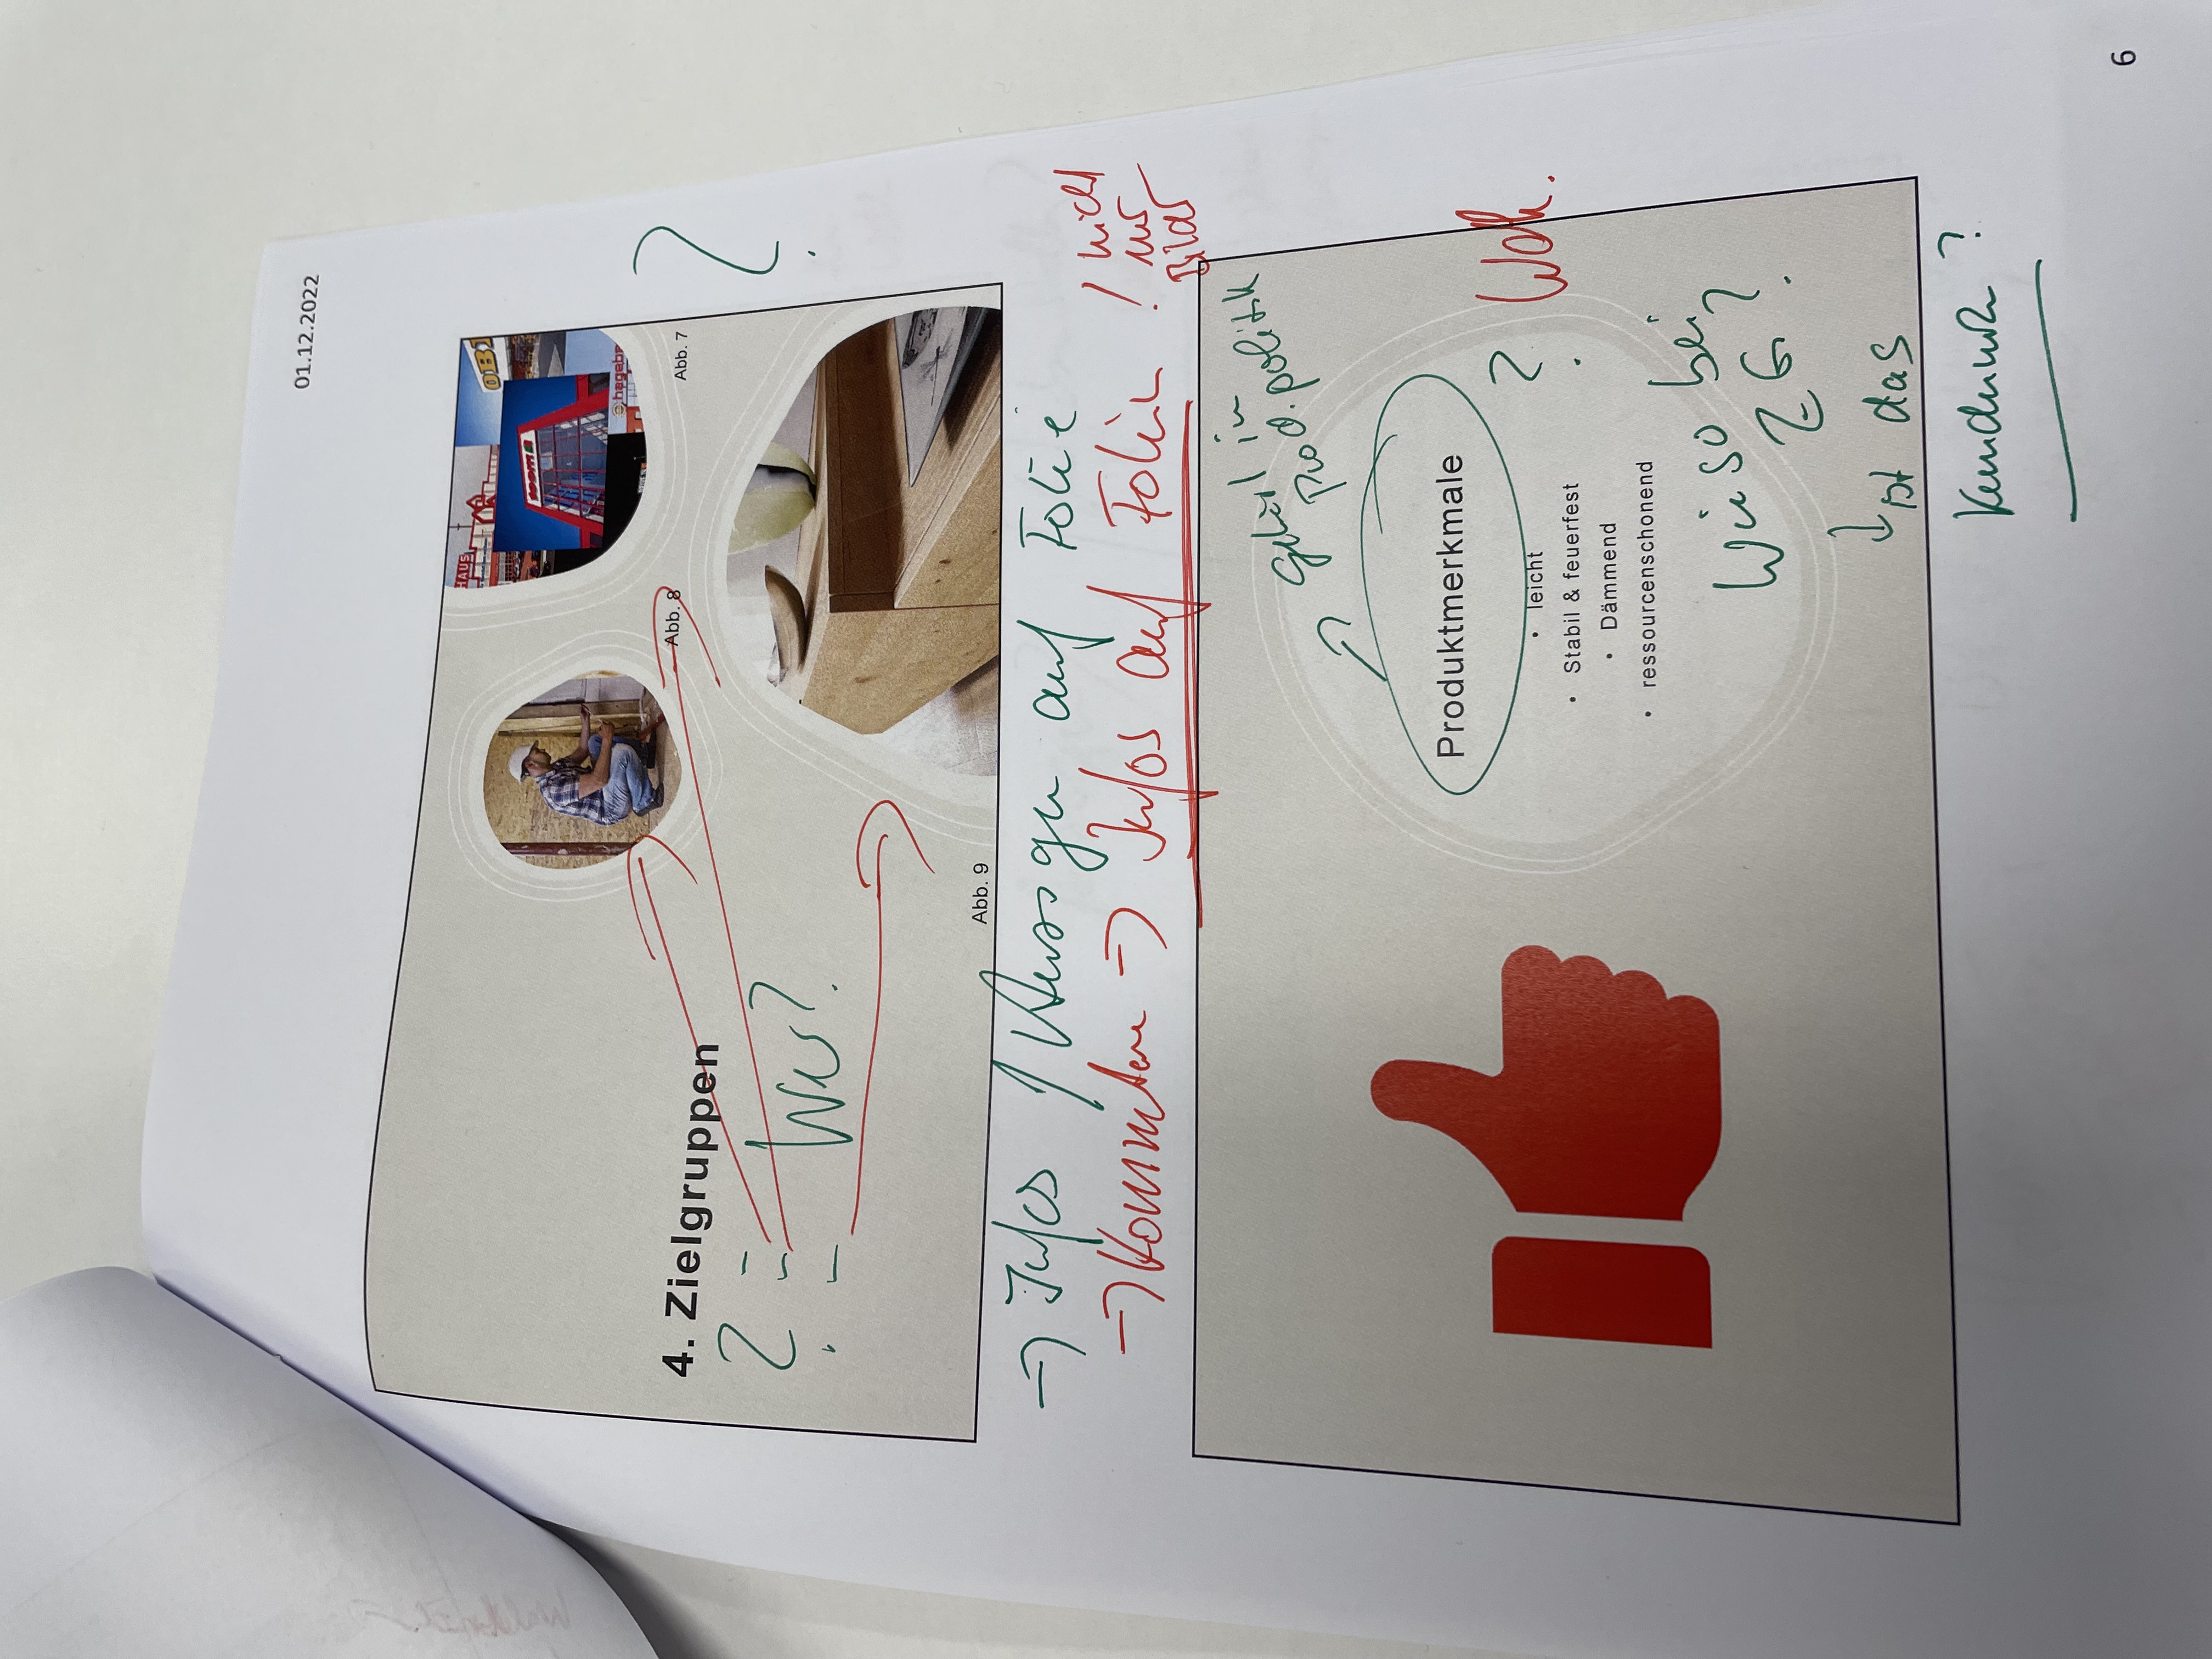 01.12.2022
HAUS
OBI
toom
hageba
Abb. 8
Abb. 7
4. Zielgruppen
?
? Wer?
Abb. 9
→ Infos / Aussagen auf Folie
→ Kommentare → Infos auf Folien ! nicht
nur
Bilder
gehört in
Prod.politik
Produktmerkmale
• leicht
?
• Stabil & feuerfest
• Dämmend
• ressourcenschonend
Wieso bei
ZG?
↓ ist das
?
6